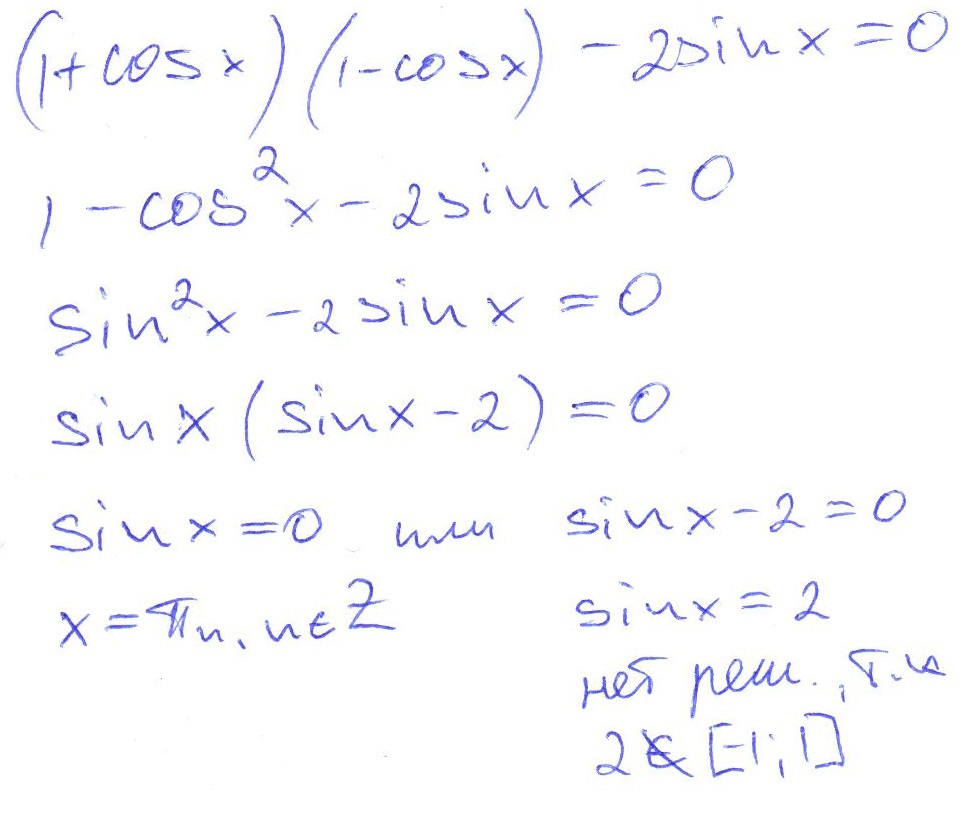 (1+cosx)(1-cosx) - 2sinx = 0
1 - cos²x - 2sinx = 0
sin²x - 2sinx = 0
sinx(sinx - 2) = 0
sinx = 0 или sinx - 2 = 0
x = πn, n∈Z sinx = 2
нет реш., т.к
2 ∉ [-1; 1]